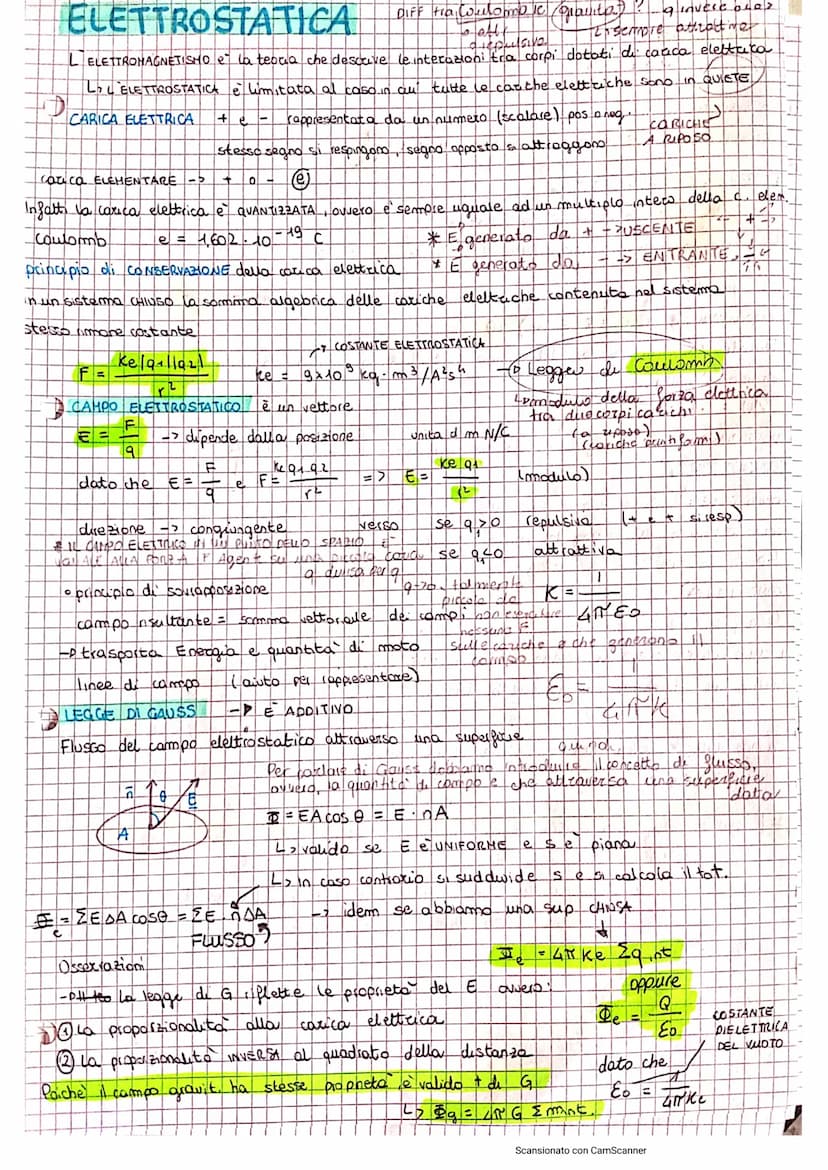 ELETTROSTATICA
DIFF tra Coulomb e (gravitaz) ?
L'ELETTROMAGNETISMO e' la teoria che descrive le interazioni tra corpi dotati di carica elettrica
↳ L'ELETTROSTATICA e' limitata al caso in cui tutte le cariche elettriche sono in QUIETE
CARICHE A RIPOSO
CARICA ELETTRICA + e - rappresentata da un numero (scalare) pos o neg.
stesso segno si respingono, segno opposto si attraggono
carica ELEMENTARE -> + o - (e)
Infatti la carica elettrica e' QUANTIZZATA, ovvero e' sempre uguale ad un multiplo intero della c. elem.
coulomb e = 1,602 · 10⁻¹⁹ C
* E generato da + -> USCENTE
* E generato da - -> ENTRANTE
principio di CONSERVAZIONE della carica elettrica
in un sistema CHIUSO la somma algebrica delle cariche elettriche contenute nel sistema
stesso rimane costante
F = ke|q1||q2| / r²
COSTANTE ELETTROSTATICA
ke = 9x10⁹ kg · m³/A²s⁴
Legge di Coulomb
modulo della forza elettrica
tra due corpi carichi
(a riposo)
(cariche puntiformi)
CAMPO ELETTROSTATICO è un vettore
E = F/q -> dipende dalla posizione unità d m N/C
dato che E = F/q e F = ke q1 q2 / r² => E = ke q1 / r² (modulo)
direzione -> congiungente verso se q>0 repulsiva (+ e + si resp)
se q<0 attrattiva
* IL CAMPO ELETTRICO IN UN PUNTO DELLO SPAZIO E'
q divisa per q
• principio di sovrapposizione
q->0, talmente piccola da
K = 1 / 4πε0
campo risultante = somma vettoriale dei campi
sulle cariche che generano il campo
-> trasporta Energia e quantita' di moto
linee di campo (aiuto per rappresentare)
ε0 = 1 / 4πk
LEGGE DI GAUSS -> E' ADDITIVO
Flusso del campo elettrostatico attraverso una superficie
quindi
Per parlare di Gauss dobbiamo introdurre il concetto di flusso,
ovvero, la quantità di campo e che attraversa una superficie
data
n θ E
A
Φ = EA cos θ = E · nA
↳ valido se E e' UNIFORME e s e' piana
↳ In caso contrario si suddivide s e si calcola il tot.
Φe = ΣEΔA cosθ = ΣE · nΔA -> idem se abbiamo una sup CHIUSA
FLUSSO
Φe = 4π ke Σq int
Osservazioni
oppure
- La legge di G riflette le proprieta' del E ovvero:
① La proporzionalità alla carica elettrica
Φe = Q / ε0
COSTANTE
DIELETTRICA
DEL VUOTO
② La proporzionalità INVERSA al quadrato della distanza
dato che
Poichè il campo gravit. ha stesse proprieta' è valido t di G
ε0 = 1 / 4πKe
↳ Φg = 4π G Σ m int.
Scansionato con CamScanner